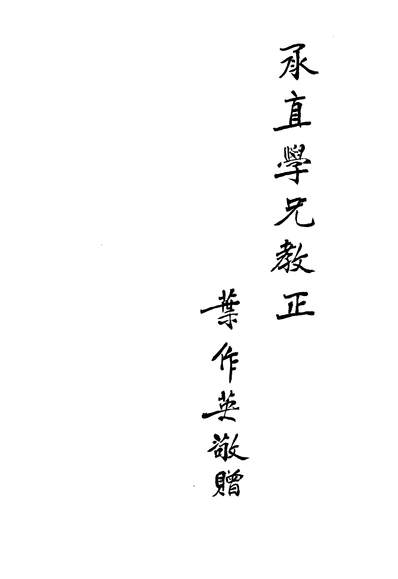 承直學兄教正
葉作英敬贈